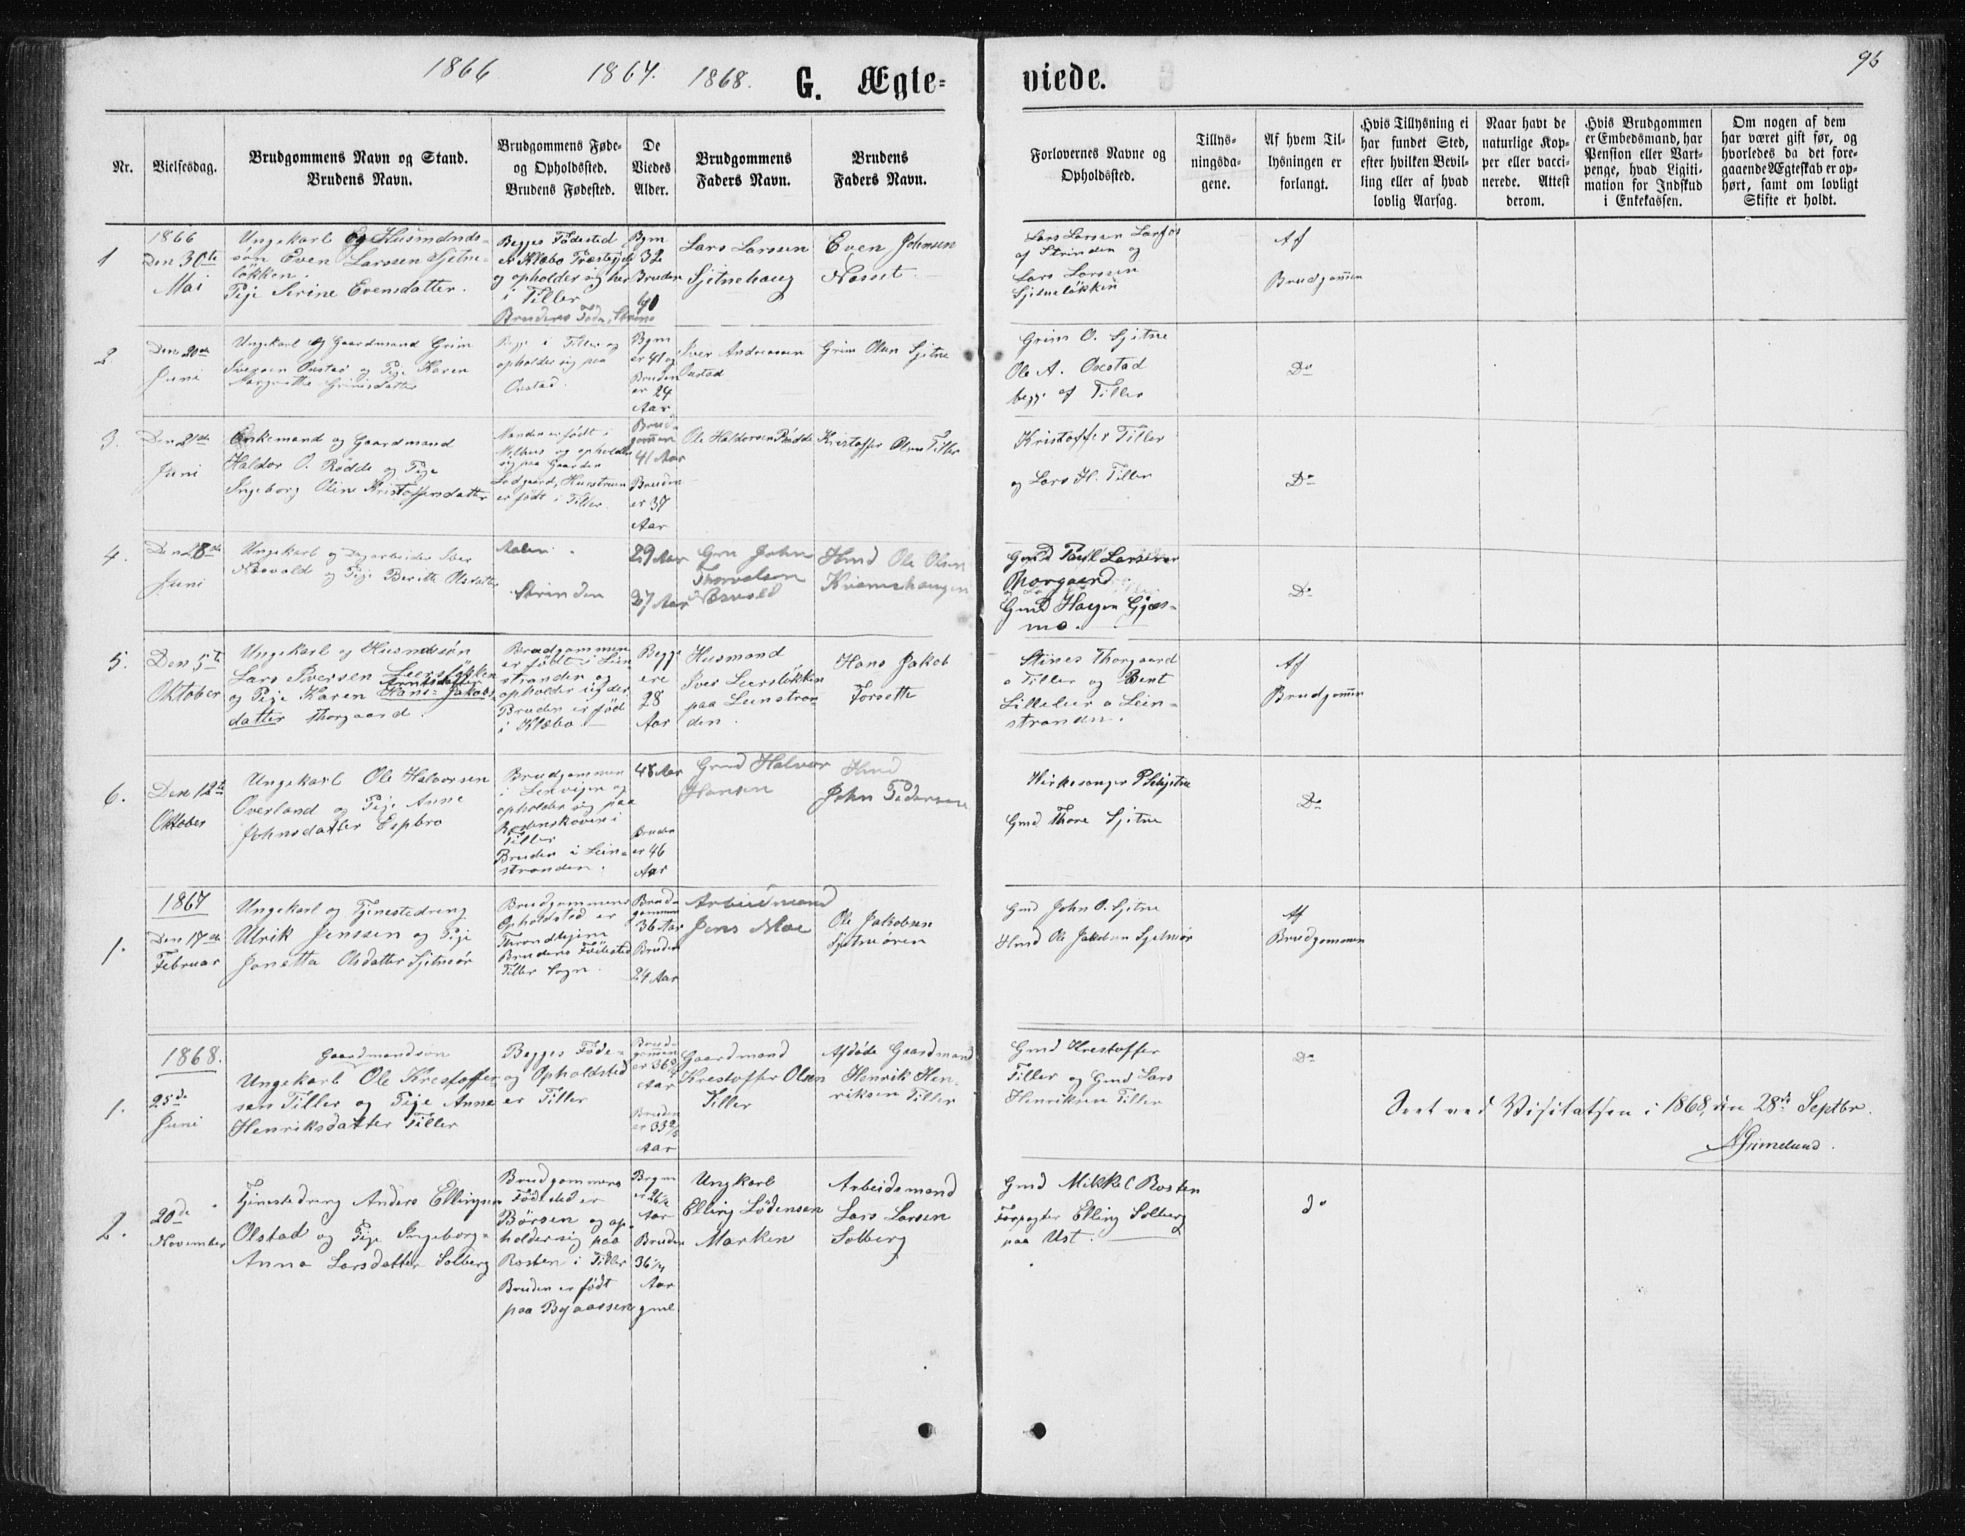 1866 1867. 1868. G. Ægte=
viede.
96
Nr.
Vielsesdag.
Brudgommens Navn og Stand.
Brudens Navn.
Brudgommens Føde-
og Opholdssted.
Brudens Fødested.
De
Viedes
Alder.
Brudgommens
Faders Navn.
Brudens
Faders Navn.
Forlovernes Navne og
Opholdssted.
Tillys-
ningsda-
gene.
Af hvem Til-
lysningen er
forlangt.
Hvis Tillysning ei
har fundet Sted,
efter hvilken Bevil-
ling eller af hvad
lovlig Aarsag.
Naar havt de
naturlige Kop-
per eller vacci-
nerede. Attest
derom.
Hvis Brudgommen
er Embedsmand, har
Pension eller Vart-
penge, hvad Ligiti-
mation for Indskud
i Enkekassen.
Om nogen af dem
har været gift før, og
hvorledes da det fore-
gaaende Ægteskab er op-
hørt, samt om lovligt
Skifte er holdt.
1
1866
Den 30te
Mai
Ungekarl og Husmands-
søn Even Larssen Sjetne-
løkken.
Pige Serine Evensdatter.
Begges Fødested
er Klæbo Præstegjeld
og opholder sig her
i Tiller
Brudens Føde, Strind
Bgm
32
Bruden
40
Lars Larssen
Sjetnehaug
Even Johnsen
Nosset
Lars Larssen
af Strinden og
Lars Larssen
Sjetneløkken
Af
Brudgommen
2
Den
Juni
Ungekarl og Gaardmand Grim
Iversen Onstad og Pige Karen
Margrethe Grimsdatter
Begge i Tiller og
opholder sig paa
Onstad.
Bgm
er 41 og
Bruden
er 24
Aar
Iver Andreassen
Onstad
Grim Olsen Sjetne
Grim O. Sjetne
Ole A. Onstad
begge af Tiller
Do
3.
Den 21de
Juni
Enkemand og Gaardmand
Haldor O. Rødde og Pige
Ingeborg Olin Kristoffersdatter
Manden er født i
Melhus og opholder
sig paa Gaarden
Lodgaard, Hustruen
er født i Tiller.
Brud-
gommen
41 Aar
Bruden
er 37
Aar
Ole Haldorsen Rødde
Kristoffer Olsen Tiller
Kristoffer Tiller
og Lars H. Tiller
Do
4.
Den 28de
Juni
Ungekarl og Dagarbeider Iver
og Pige Beritte Olsdatter
Aalen.
Strinden
29 Aar
27 Aar
John
Hmd Ole Olsen
Kvamshaugen
Gmd Paul Larsen
Thorgaard
Gmd Haagen Gjøs-
mo.
Do
5.
Den 5te
Oktober
Ungekarl og Husmdsøn
Lars Iversen Leersløkken
og Pige Karen Hans-Jakobs-
Arntsdatter
datter Thorgaard.
Brudgommen
er født i Lein
stranden og
opholder sig der
Bruden er født
i Klæbo
Begge
ere
28
Aar
Husmand
Iver Leersløkken
paa Leinstran-
den.
Hans Jakob
Forseth
Stines Thorgaard
a Tiller og Bent
Lilleleer a Lein-
stranden.
Af
Brudgommen
6.
Den 12te
Oktober
Ungekarl Ole Halvorsen
Overland og Pige Anne
Johnsdatter Espbro
Brudgommen
i Lenvigen og
opholder sig paa
i
Tiller
Bruden i Lein-
stranden.
48 Aar
Bruden
er 46
Aar
Gmd Halvor
Hansen
Hmd
John Pedersen
Kirkesanger P. Sjetne
Gmd Thore Sjetne
Do
1.
1867
Den 17de
Februar
Ungekarl og Tjenestedreng
Ulrik Jenssen og Pige
Janetta Olsdatter Sjetnør
Brudgommens
Opholdsted er
Throndhjem
Brudens Fødested
Tiller Sogn.
Brud-
gommen
36 Aar
Bruden
24 Aar
Arbeidmand
Jens Moe
Ole Jakobsen
Sjetneøren
Gmd John O. Sjetne
Hmd Ole Jakobsen Sjetneør
Af
Brudgommen
1.
1868.
25de
Juni
Gaardmandsøn
Ungekarl Ole Krestoffer-
sen Tiller og Pige Anne
Henriksdatter Tiller
Begges Føde-
og Opholdsted
er Tiller
Brud-
gommen
er 36
Aar
Bruden
er 33
Aar
Gaardmand
Krestoffer Olsen
Tiller
Afdøde Gaardmand
Henrik Hen-
riksen Tiller
Gmd Krestoffer
Tiller og Gmd Lars
Henriksen Tiller
Do
Seet ved Visitatsen i 1868, den 28de Septbr.
AGrimelund.
2.
20de
November
Tjenestedreng Anders Ellingsen
Olstad og Pige Ingeborg-
Anna Larsdatter Solberg
Brudgommens
Fødested er
Børsen og op-
holder sig paa
Rosten i Tiller
Bruden er født
paa Byaassen
Brgm
er
Aar
Bruden
36
Aar
gml
Ungkarl
Elling Lødensen
Marken
Arbeidsmand
Lars Larsen
Solberg
Gmd Mikkel Rosten
Forpagter Elling Solberg
paa Ust.
do